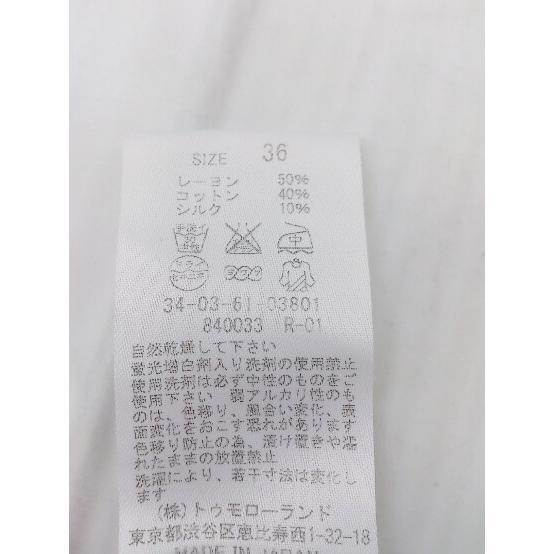 SIZE 36
レーヨン 50%
コットン 40%
シルク 10%
中
34-03-61-03801
840033 R-01
自然乾燥して下さい
蛍光増白剤入り洗剤の使用禁止
使用洗剤は必ず中性のものをご
使用下さい 弱アルカリ性のも
のは、色移り、風合い変化、表
面変化をおこす恐れがあります
色移り防止の為、漬け置きや濡
れたままの放置禁止
洗濯により、若干寸法は変化し
ます
(株)トゥモローランド
東京都渋谷区恵比寿西1-32-18
MADE IN JAPAN